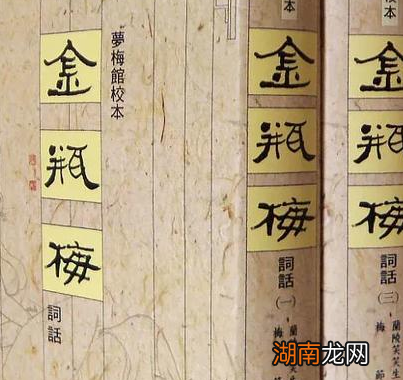 金瓶梅
詞話
夢梅館校本
本
金瓶梅
詞話
(一)
蘭陵笑
梅
校本
金瓶梅
詞話
(三)
蘭陵笑笑生
梅節
湖南龙网